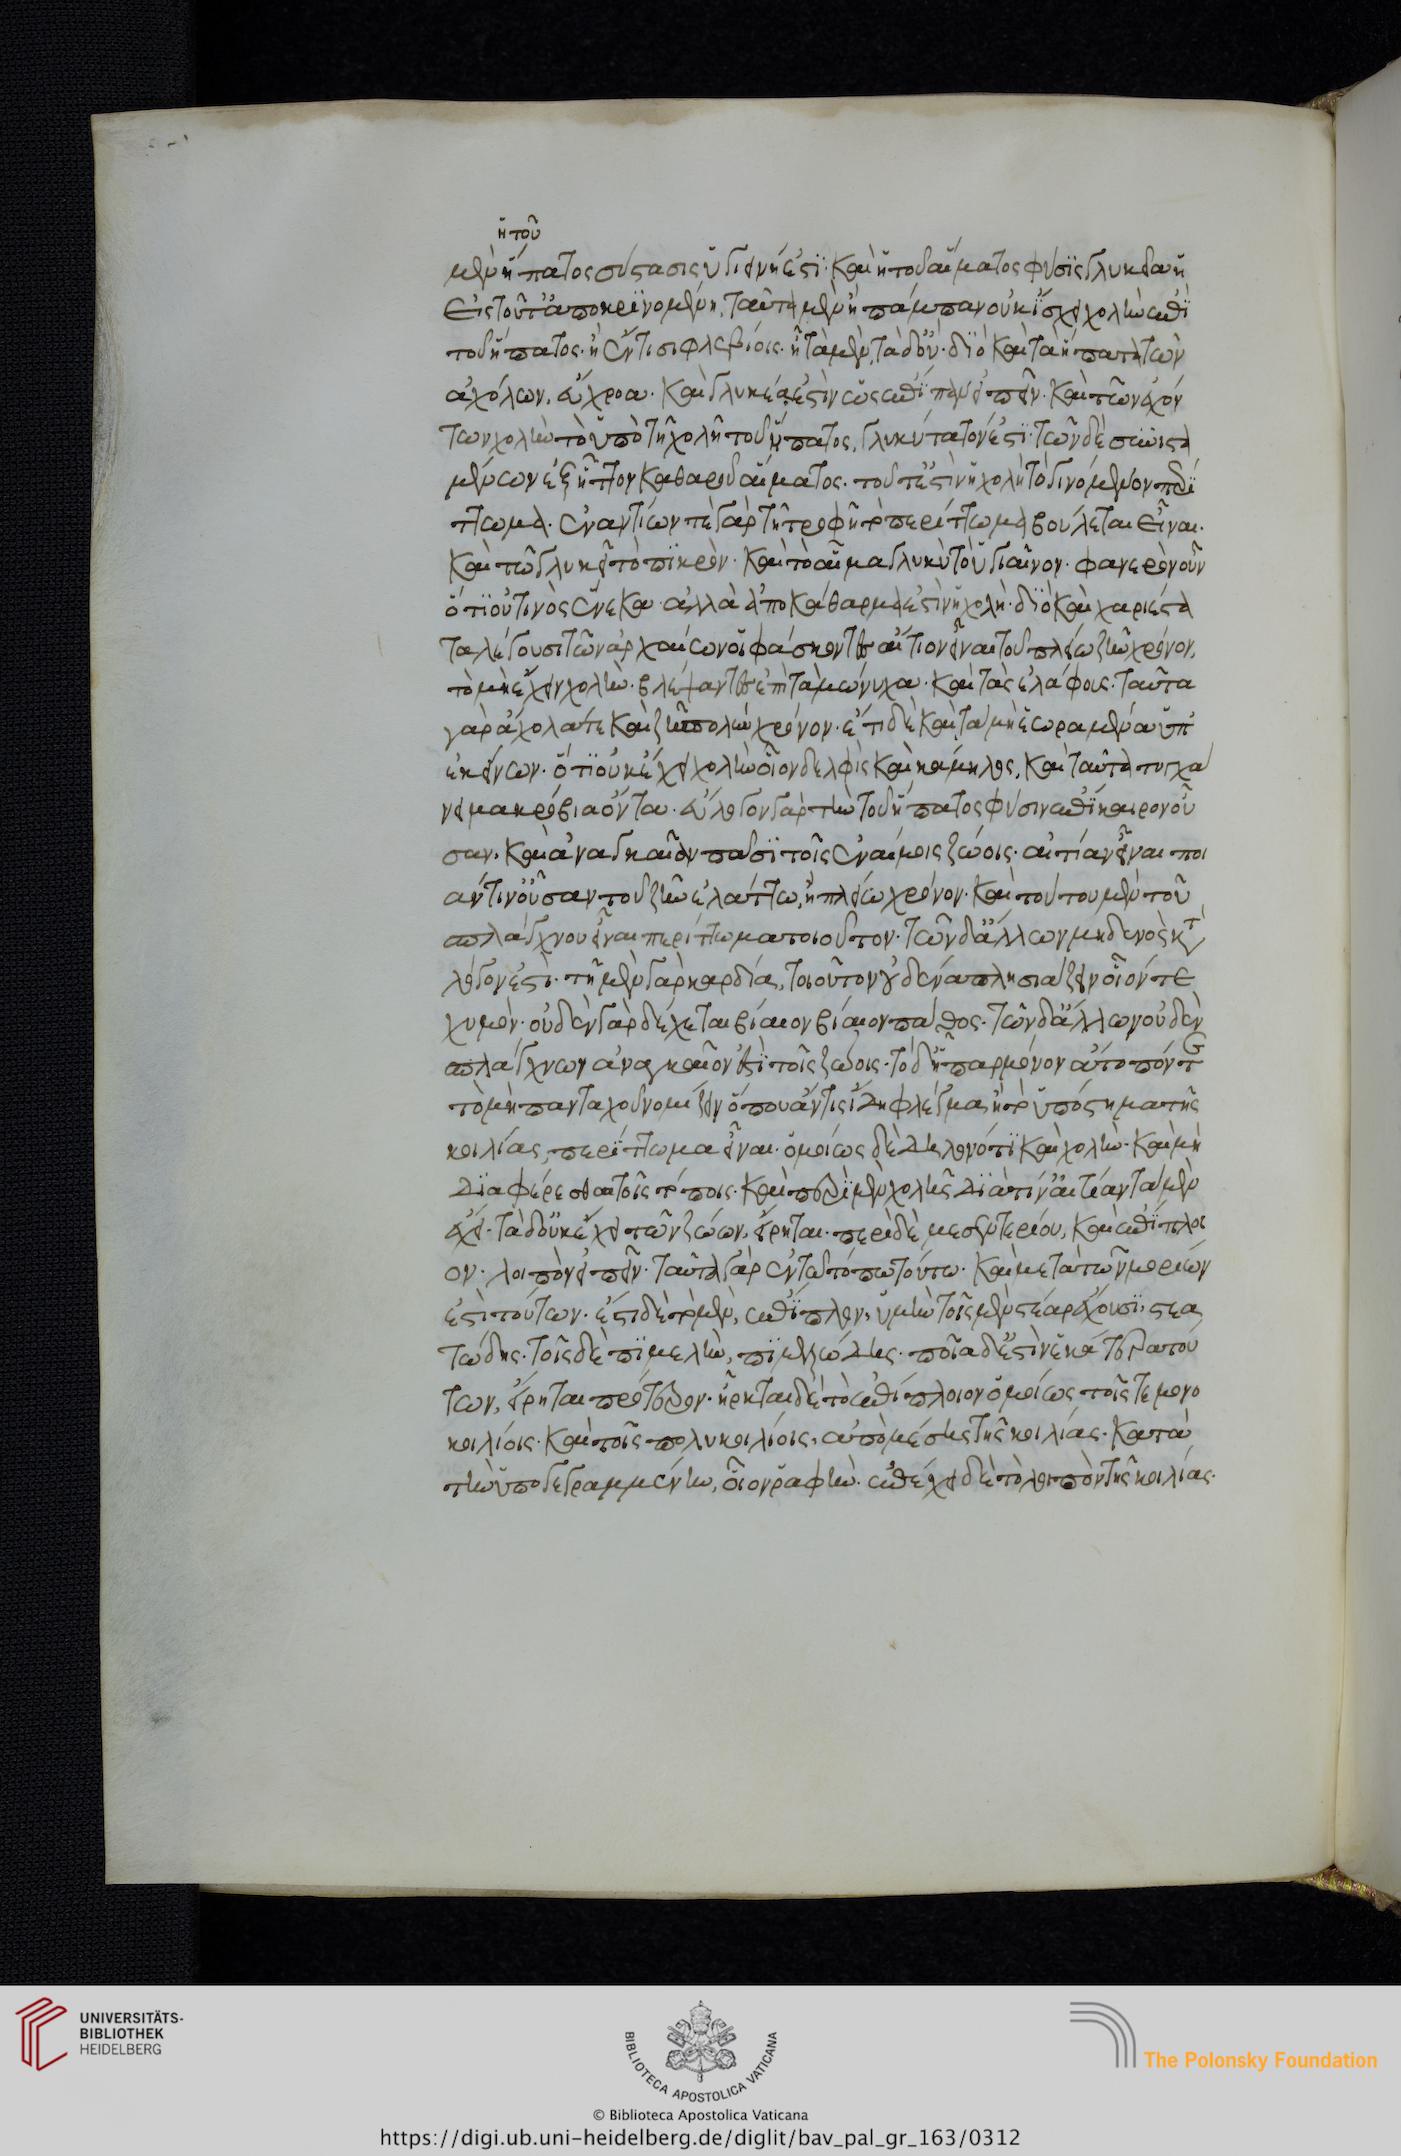 ἢ τοῦ
μὲν ἥπατος σύστασις ὑγιεινή ἐστι· καὶ ἡ τοῦ αἵματος φύσις γλυκεῖα ἡ
εἰς τοῦτ' ἀποκρινομένη, ταῦτα μὲν ἢ πάμπαν οὐκ ἴσχει χολὴν ἐπὶ
τοῦ ἥπατος· ἢ ἔν τισι φλεβίοις· ἢ τὰ μὲν, τὰ δ' οὔ· διὸ καὶ τὰ ἥπατα τῶν
ἀχόλων, εὔχροα· καὶ γλυκέα ἐστὶν ὡς ἐπίπαν εἰπεῖν· καὶ τῶν ἐχόν
των χολὴν τὸ ὑπὸ τῇ χολῇ τοῦ ἥπατος, γλυκύτατόν ἐστι· τῶν δὲ συνιστα
μένων ἐξ ἧττον καθαροῦ αἵματος· τοῦτ' ἐστὶν ἡ χολὴ τὸ γινόμενον περί
ττωμα· ἐναντίων τε γὰρ τῇ τροφῇ τὸ περίττωμα βούλεται εἶναι·
καὶ τῷ γλυκεῖ τὸ πικρὸν· καὶ τὸ αἷμα γλυκὺ τὸ ὑγιαῖνον· φανερὸν οὖν
ὅτι οὔ τινὸς ἕνεκα· ἀλλὰ ἀποκάθαρμά ἐστὶν ἡ χολὴ· διὸ καὶ χαριέστα
τα λέγουσι τῶν ἀρχαίων οἱ φάσκοντες αἴτιον εἶναι τοῦ πλείω ζῆν χρόνον,
τὸ μὴ ἔχειν χολὴν· βλέψαντες ἐπὶ τὰ μώνυχα· καὶ τὰς ἐλάφους· ταῦτα
γὰρ ἄχολά τε καὶ ζῇ πολὺν χρόνον· ἔτι δὲ καὶ τὰ μὴ ἑωραμένα ὑπ'
ἐκείνων· ὅτι οὐκ ἔχει χολὴν οἷον δελφὶς καὶ κάμηλος, καὶ ταῦτα τυγχά
νει μακρόβια ὄντα· εὔλογον γὰρ τὴν τοῦ ἥπατος φύσιν ἐπίκαιρον οὖ
σαν, καὶ ἀναγκαῖον πᾶσι τοῖς ἐναίμοις ζώοις· αἰτίαν εἶναι ποι
άν τιν' οὖσαν τοῦ ζῆν ἐλάττω, ἢ πλείω χρόνον· καὶ τούτου μὲν τοῦ
σπλάγχνου εἶναι περίττωμα τοιοῦτον· τῶν δ' ἄλλων μηδενὸς κατ
λόγον ἐστὶ· τῇ μὲν γὰρ καρδίᾳ, τοιοῦτον οὐδένα πλησιάζειν οἷόν τε
χυμὸν· οὐδὲν γὰρ δέχεται βίαιον βίαιον πάθος· τῶν δ' ἄλλων οὐδὲν
σπλάγχνων ἀναγκαῖον ἐστὶ τοῖς ζώοις· τὸ δ' ἧπαρ μόνον ἄτοπόν τε
τὸ μὴ πανταχοῦ νομίζειν ὅπου ἄν τις ἴδῃ φλέγμα, ἢ τὸ ὑπόστημα τῆς
κοιλίας, περίττωμα εἶναι· ὁμοίως δὲ δηλονότι καὶ χολὴν· καὶ μὴ
διαφέρεσθαι τοῖς τόποις· καὶ περὶ μὲν χολῆς διὰ τίν' αἰτίαν τὰ μὲν
ἔχει· τὰ δ' οὐκ ἔχει τῶν ζώων, εἴρηται· περὶ δὲ μεσεντερίου, καὶ ἐπίπλοι
ον· λοιπὸν εἰπεῖν· ταῦτα γὰρ ἐν τῷ τόπῳ τούτῳ· καὶ μετὰ τῶν μορίων
ἐστὶ τούτων· ἔστι δὲ τὸ μὲν, ἐπίπλον, ὑμὴν τοῖς μὲν στέαρ ἔχουσι, στεα
τώδης· τοῖς δὲ πιμελὴν, πιμελώδης· ποῖα δέ ἐστὶν ἑκάτερα τού
των, εἴρηται πρότερον· ἤρτηται δὲ τὸ ἐπίπλοιον ὁμοίως τοῖς τε μονο
κοιλίοις· καὶ τοῖς πολυκοιλίοις, ἀπὸ μέσης τῆς κοιλίας· κατὰ
τὴν ὑπογεγραμμένην, οἷον ῥαφὴν· ἐπέχει δὲ τὸ λοιπὸν τῆς κοιλίας·
UNIVERSITÄTS-
BIBLIOTHEK
HEIDELBERG
BIBLIOTECA APOSTOLICA VATICANA
The Polonsky Foundation
© Biblioteca Apostolica Vaticana
https://digi.ub.uni-heidelberg.de/diglit/bav_pal_gr_163/0312